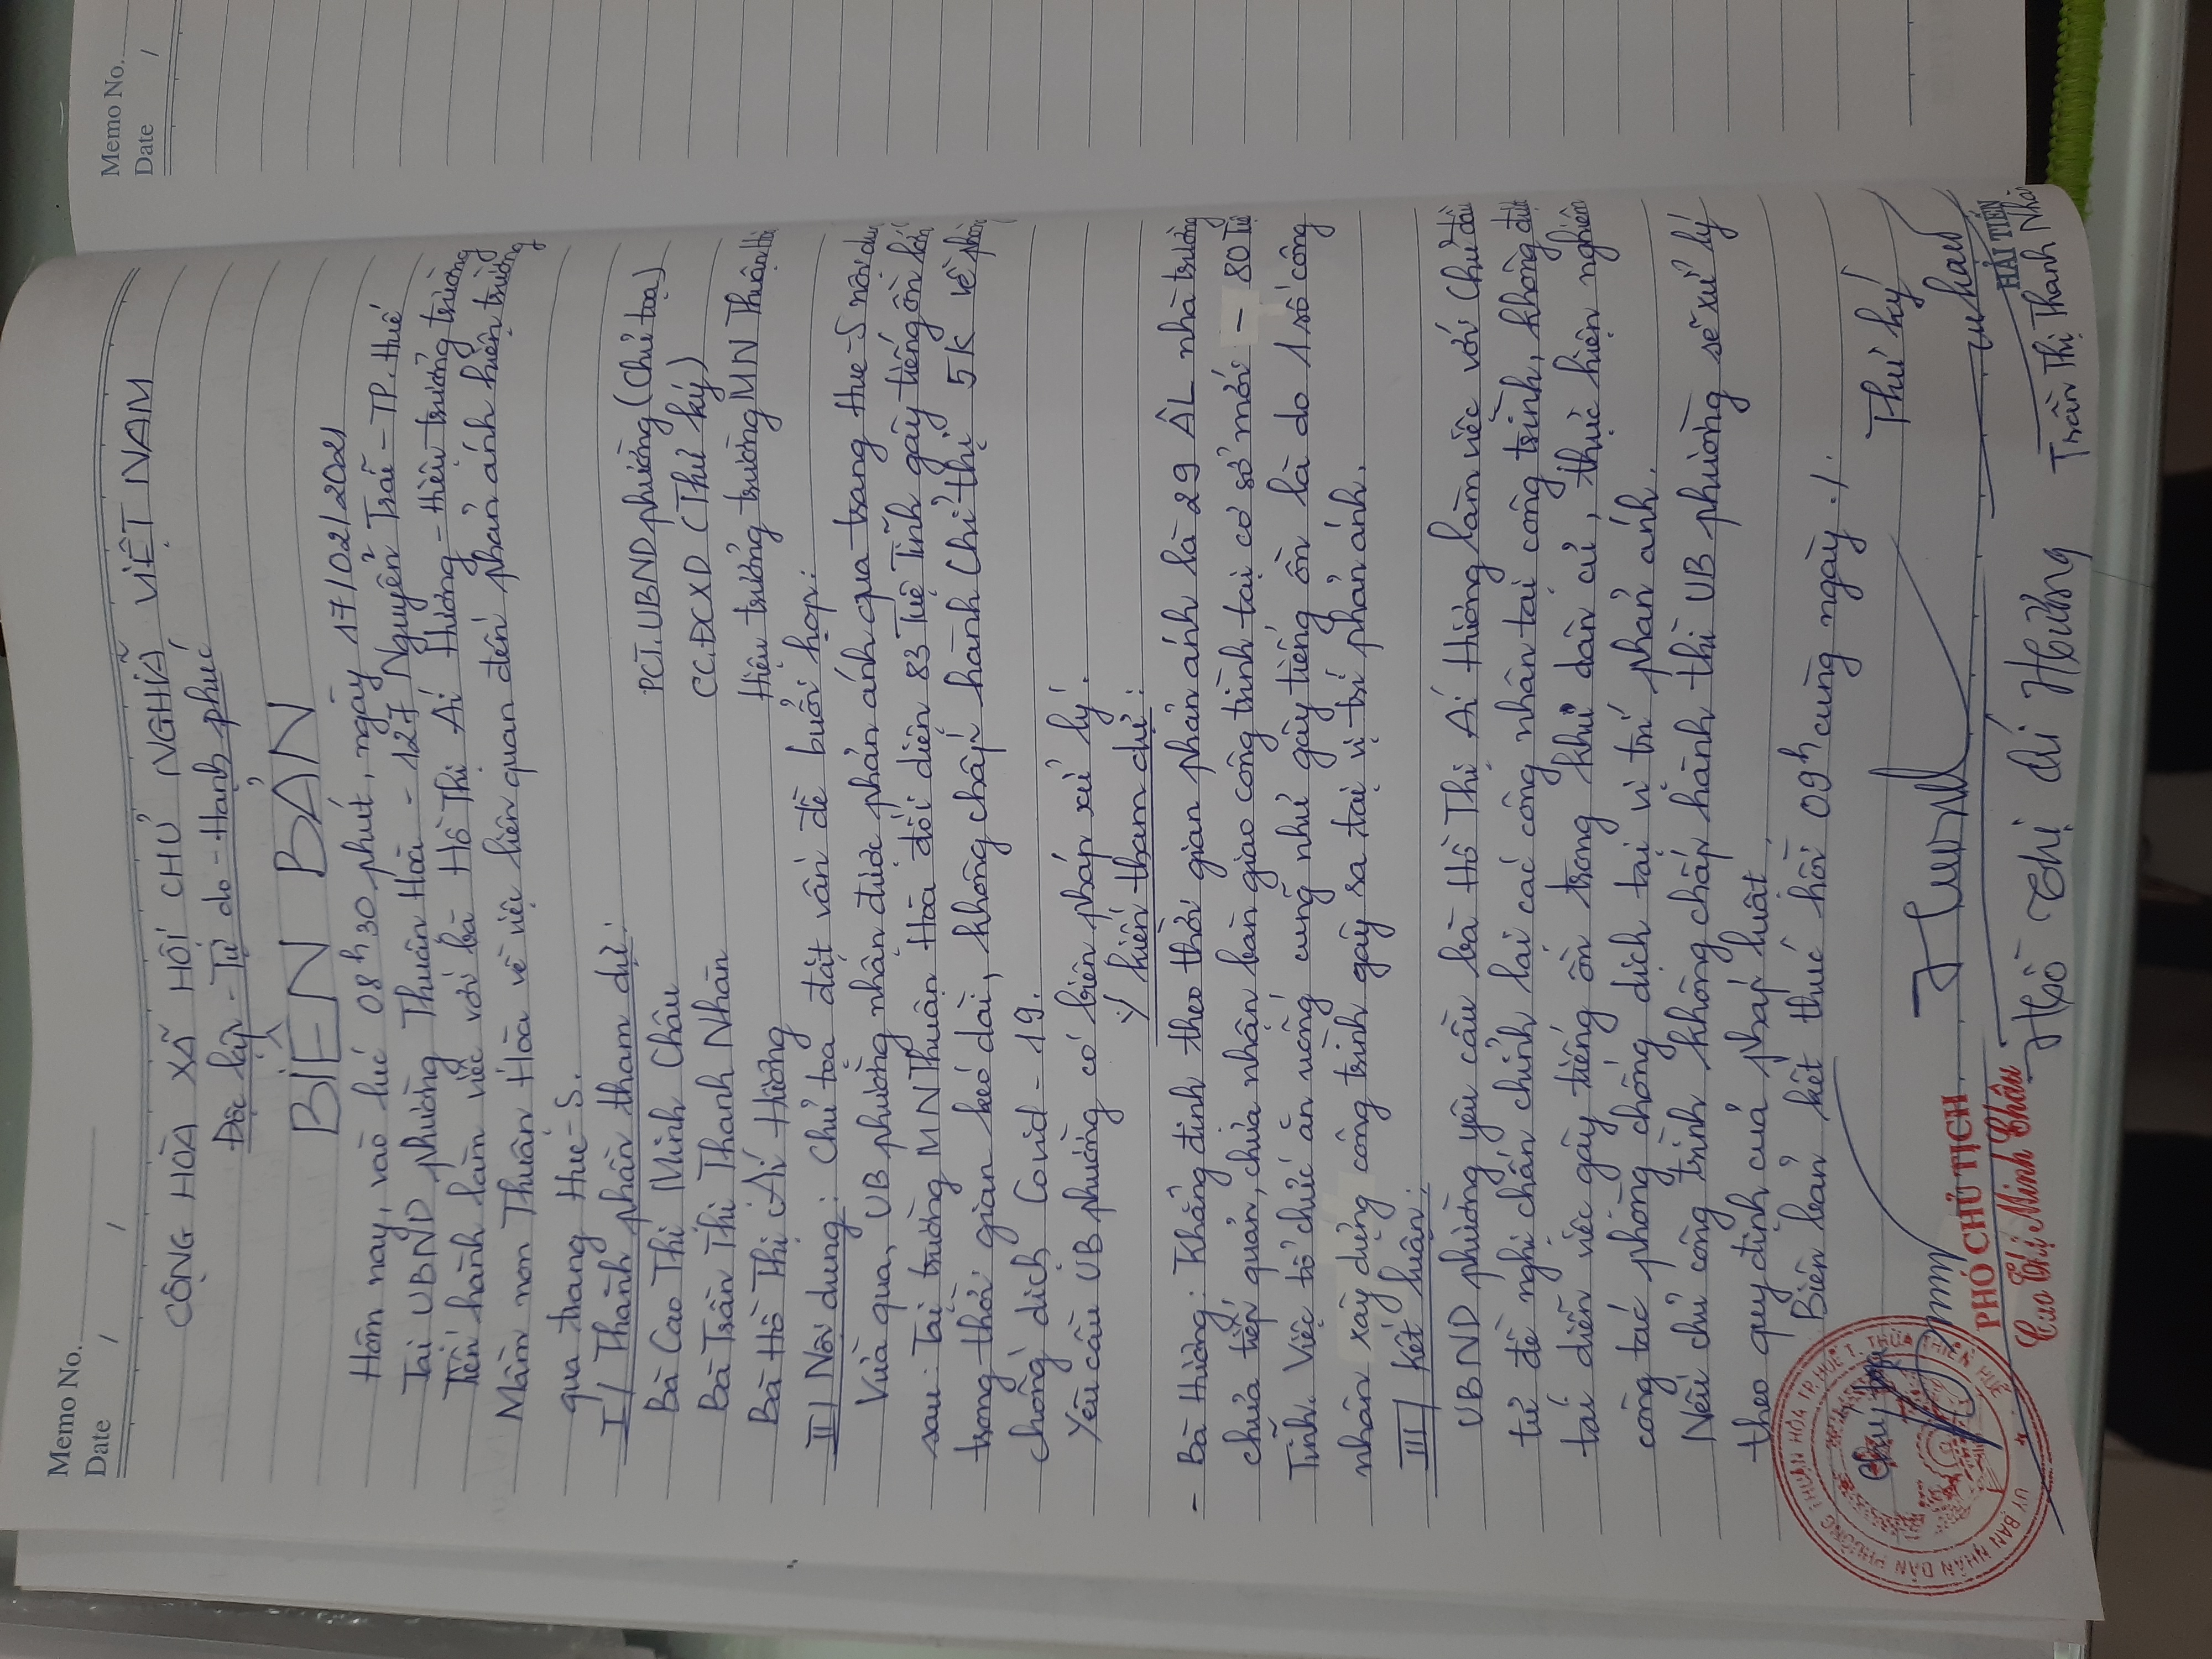 Memo No.
Date / /
CỘNG HÒA XÃ HỘI CHỦ NGHĨA VIỆT NAM
Độc lập - Tự do - Hạnh phúc
BIÊN BẢN
Hôm nay, vào lúc 08h30 phút, ngày 17/02/2021
Tại UBND phường Thuận Hoà - 127 Nguyễn Trãi - TP. Huế
Tiến hành làm việc với bà Hồ Thị Ái Hương - Hiệu trưởng trường
Mầm non Thuận Hòa về việc liên quan đến phản ánh hiện trường
qua trang Huế-S.
I/ Thành phần tham dự:
Bà Cao Thị Minh Châu PCT.UBND phường (Chủ tọa)
Bà Trần Thị Thanh Nhàn CC.ĐCXD (Thư ký)
Bà Hồ Thị Ái Hương Hiệu trưởng trường MN Thuận Hòa
II/ Nội dung: Chủ tọa đặt vấn đề buổi họp:
Vừa qua, UB phường nhận được phản ánh qua trang Hue-S nội dung
sau: Tại trường MN Thuận Hoà đối diện 83 Tuệ Tĩnh gây tiếng ồn lớn
trong thời gian kéo dài, không chấp hành Chỉ thị 5K về phòng
chống dịch Covid-19.
Yêu cầu UB phường có biện pháp xử lý.
Ý kiến tham dự:
- Bà Hương: Khẳng định theo thời gian phản ánh là 29 ÂL nhà trường
chưa tiếp quản, chưa nhận bàn giao công trình tại cơ sở mới - 80 Tuệ
Tĩnh. Việc tổ chức ăn uống cũng như gây tiếng ồn là do 1 số công
nhân xây dựng công trình gây sa tại vị trí phản ánh.
III/ Kết luận:
UBND phường yêu cầu bà Hồ Thị Ái Hương làm việc với Chủ đầu
tư đề nghị chấn chỉnh lại các công nhân tại công trình, không để
tái diễn việc gây tiếng ồn trong khu dân cư, thực hiện nghiêm
công tác phòng chống dịch tại vị trí phản ánh.
Nếu chủ công trình không chấp hành thì UB phường sẽ xử lý
theo quy định của pháp luật.
Biên bản kết thúc hồi 09h cùng ngày./.
Chủ tọa Thư ký
ỦY BAN NHÂN DÂN PHƯỜNG THUẬN HÒA TP.HUẾ T. THỪA THIÊN HUẾ
PHÓ CHỦ TỊCH
Cao Thị Minh Châu
Hồ Thị Ái Hương
HẢI TIẾN
Trần Thị Thanh Nhàn
Memo No.
Date /